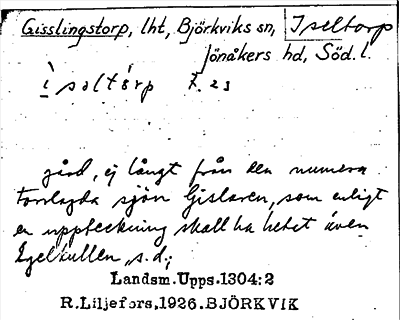 Gisslingstorp, lht, Björkviks sn, Iseltorp
Jönåkers hd, Söd. l.
ìsəltòrp f. 23
gård, ej långt från den numera
torrlagda sjön Gislaren, som enligt
en uppteckning skall ha hetat även
Igelkullen, s.d.;
Landsm.Upps.1304:2
R.Liljefors,1926.BJÖRKVIK